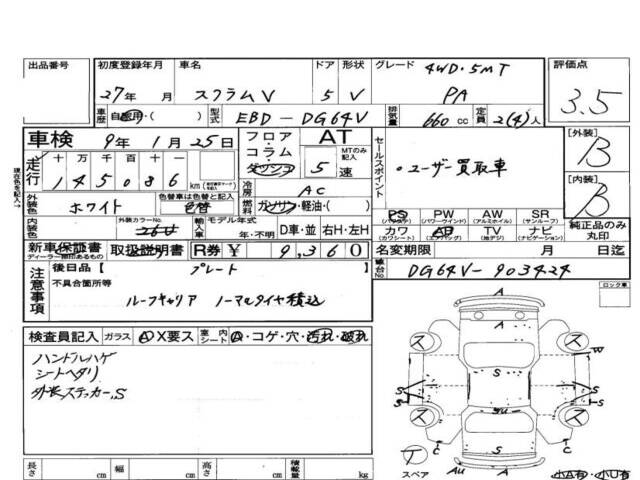 出品番号 初度登録年月 車名 ドア 形状 グレード 4WD・5MT 評価点
27年 月 スクラムV 5 V PA 3.5
車歴 自家用・( ) 型式 EBD-DG64V 排気量 660cc 定員 2(4)人
車検 9年 1月 25日 フロア・コラム・ダッシュ AT セールスポイント [外装] B
走行 十 万 千 百 十 一 MTのみ記入
現在の走行を記入→
145086 km 5速 ・ユーザー買取車
冷房 AC [内装] B
外装色 ホワイト 色替車は色替と記入 色替 燃料 ガソリン・軽油・( )
PS PW AW SR 純正品のみ丸印
(パワステ) (パワーウインド) (アルミホイル) (サンルーフ)
内装色 外装カラーNo. 26U 輸入車 モデル年式 年・不明 D車・並 右H・左H カワ AB TV ナビ
(カワシート) (エアバック) (地デジ) (ナビゲーション)
新車保証書 取扱説明書 R券 ¥ 9,360 名変期限 月 日迄
ディーラー捺印あるもの
注意事項 後日品【 プレート 】 車台No. DG64V-903424
不具合箇所等 ロック車
ルーフキャリア ノーマルタイヤ積込
検査員記入 ガラス A X要ス 室内シート A・コゲ・穴・汚れ・破れ
ハンドルハゲ
シートヘタリ
外装ステッカー,S
A
A
ス ス
W
S S S S
ス ス
C C
A
T スペア AU A 小A有・小U有
長さ cm 幅 cm 高さ cm 積載量 kg